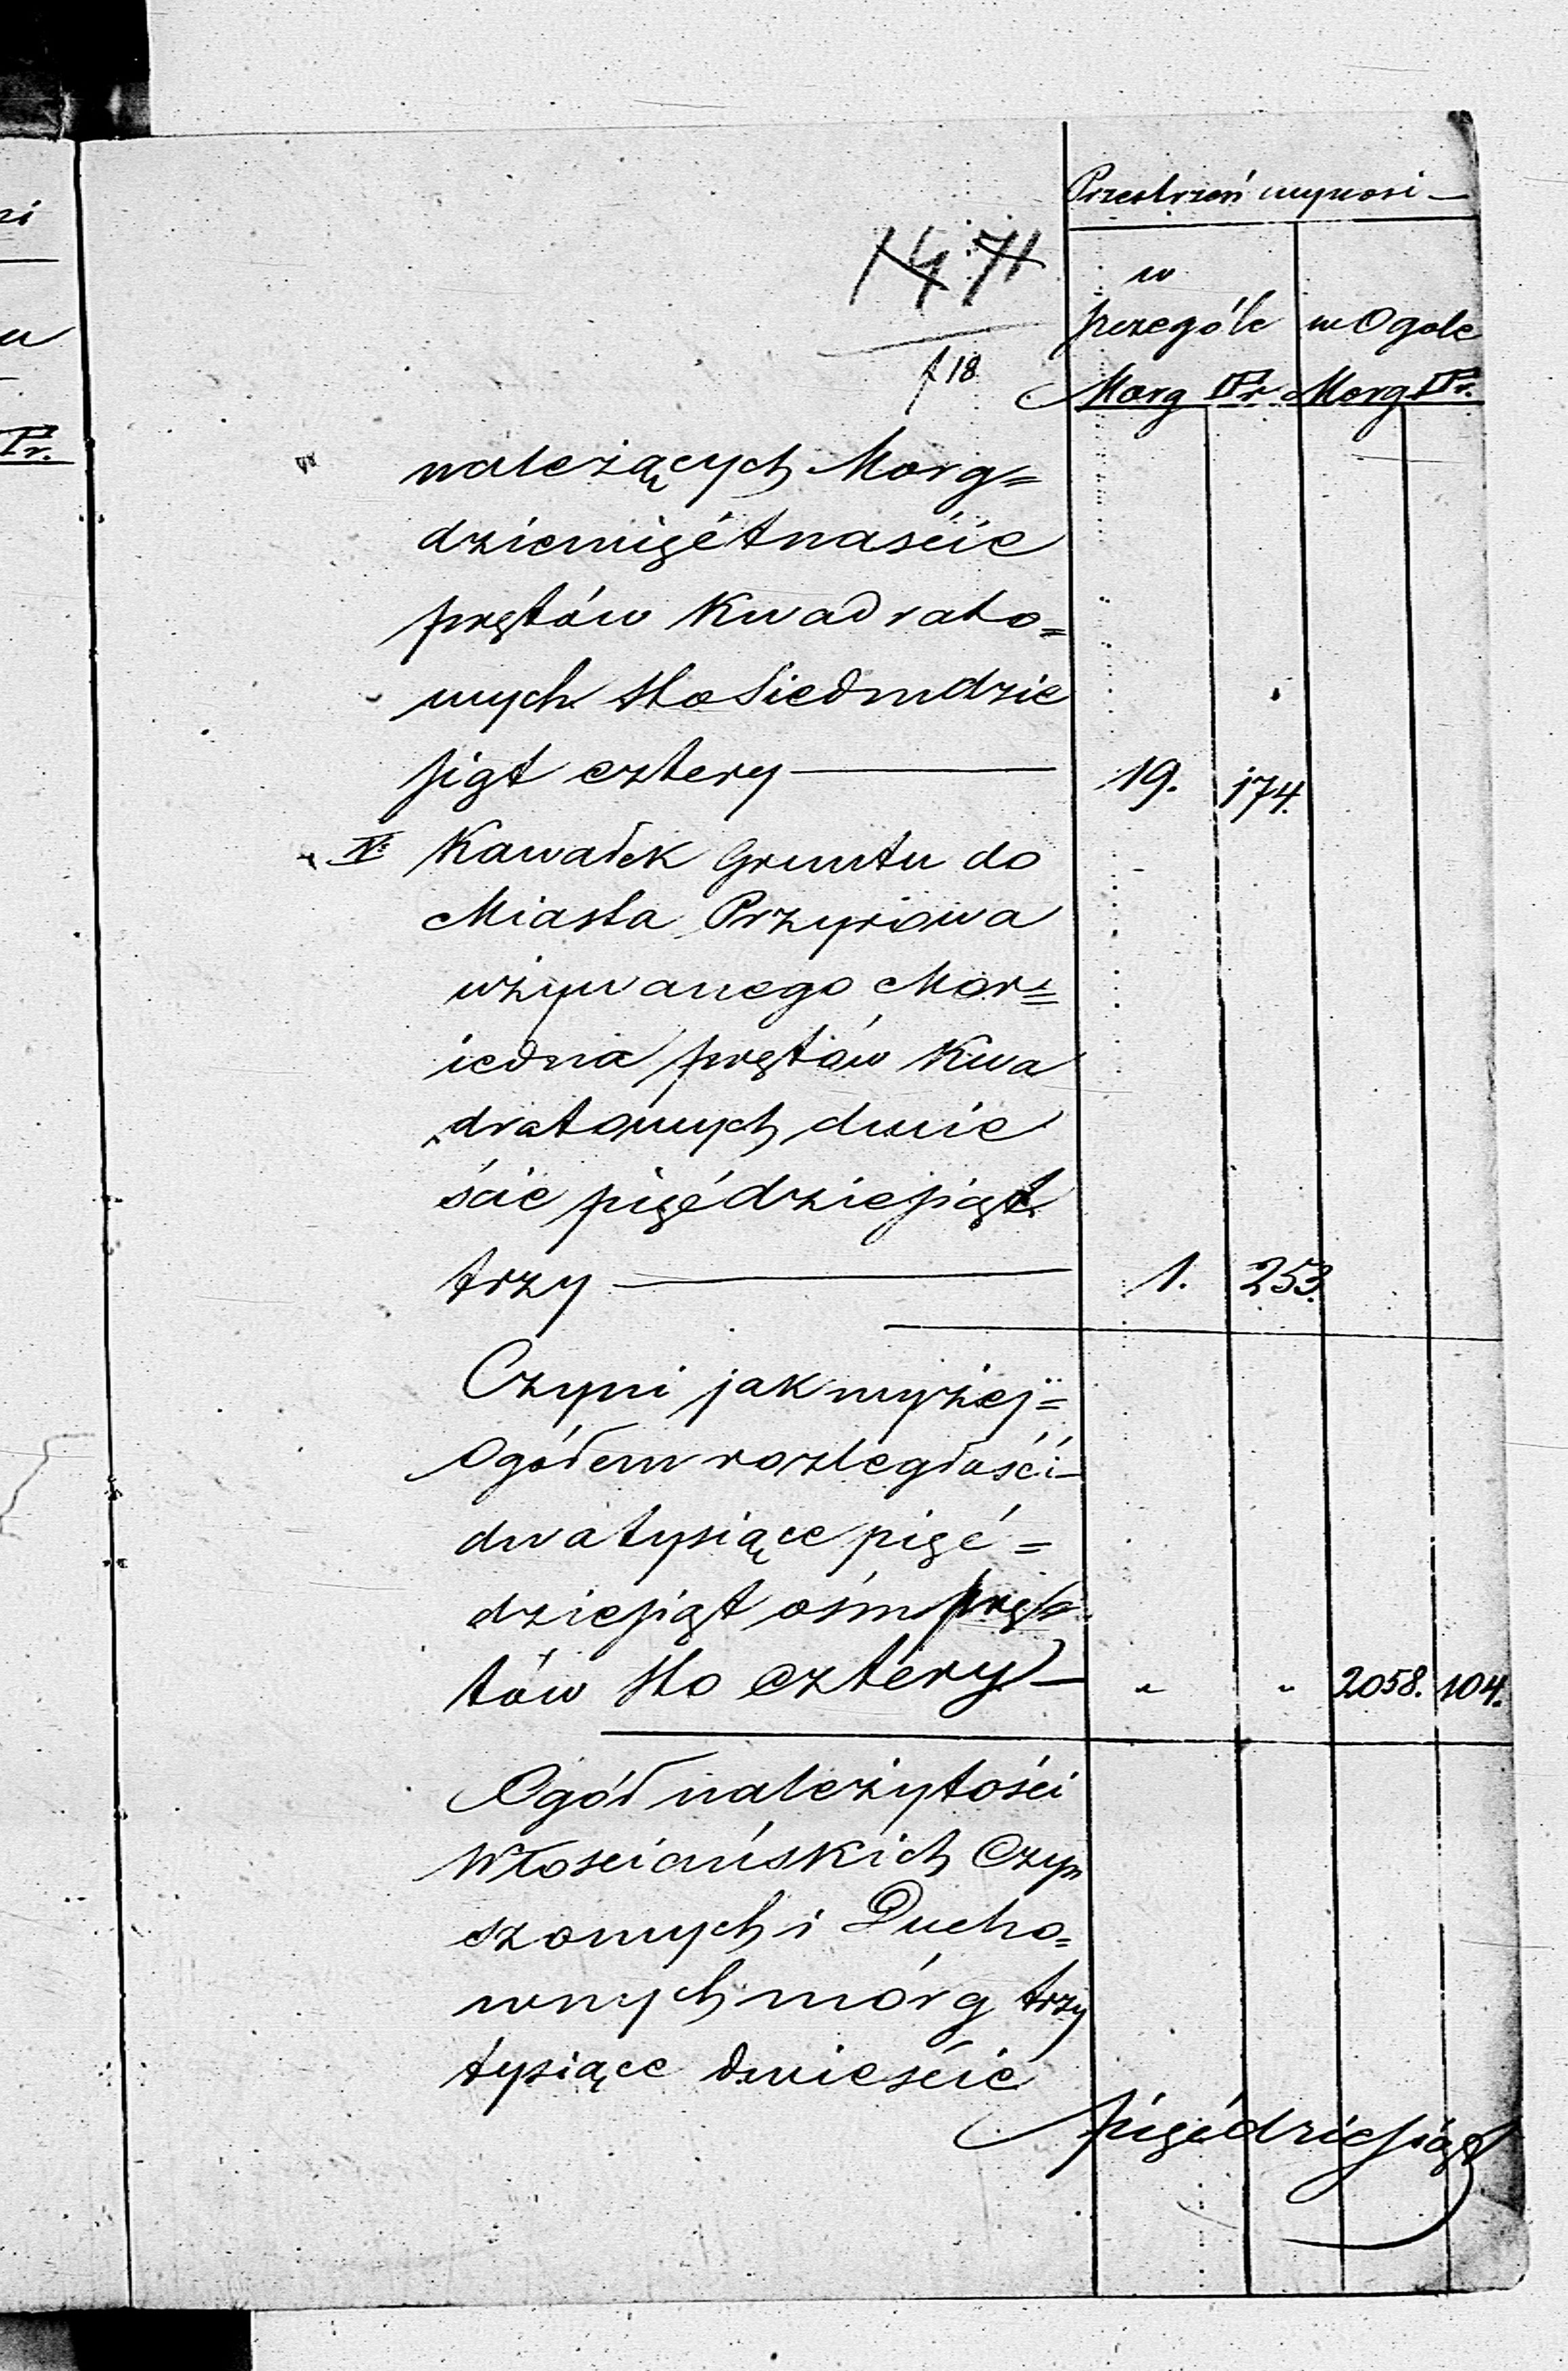 Przestrzeń wynosi —
w
szczególe w Ogole
Morg □Pr. Morg □Pr.
f 18
należących Morg=
dziewięćtnaście
prętów Kwadrato=
wych sto Siedmdzie
siąt cztery — 19. 174.
IV: Kawałek Gruntu do
Miasta Przyrowa
używanego Mor=
iedna prętów Kwa
dratowych dwie
ście pięćdziesiąt
trzy — 1. 253.
Czyni jak wyżej=
Ogółem rozległości
dwatysiące pięć=
dziesiąt ośm prę=
tów sto cztery — " " 2058. 104.
Ogół należytości
Włosciańskich Czyn
szowych i Ducho=
wnych mórg trzy
tysiące dwieście
pięćdziesiąt
zi
Pr.